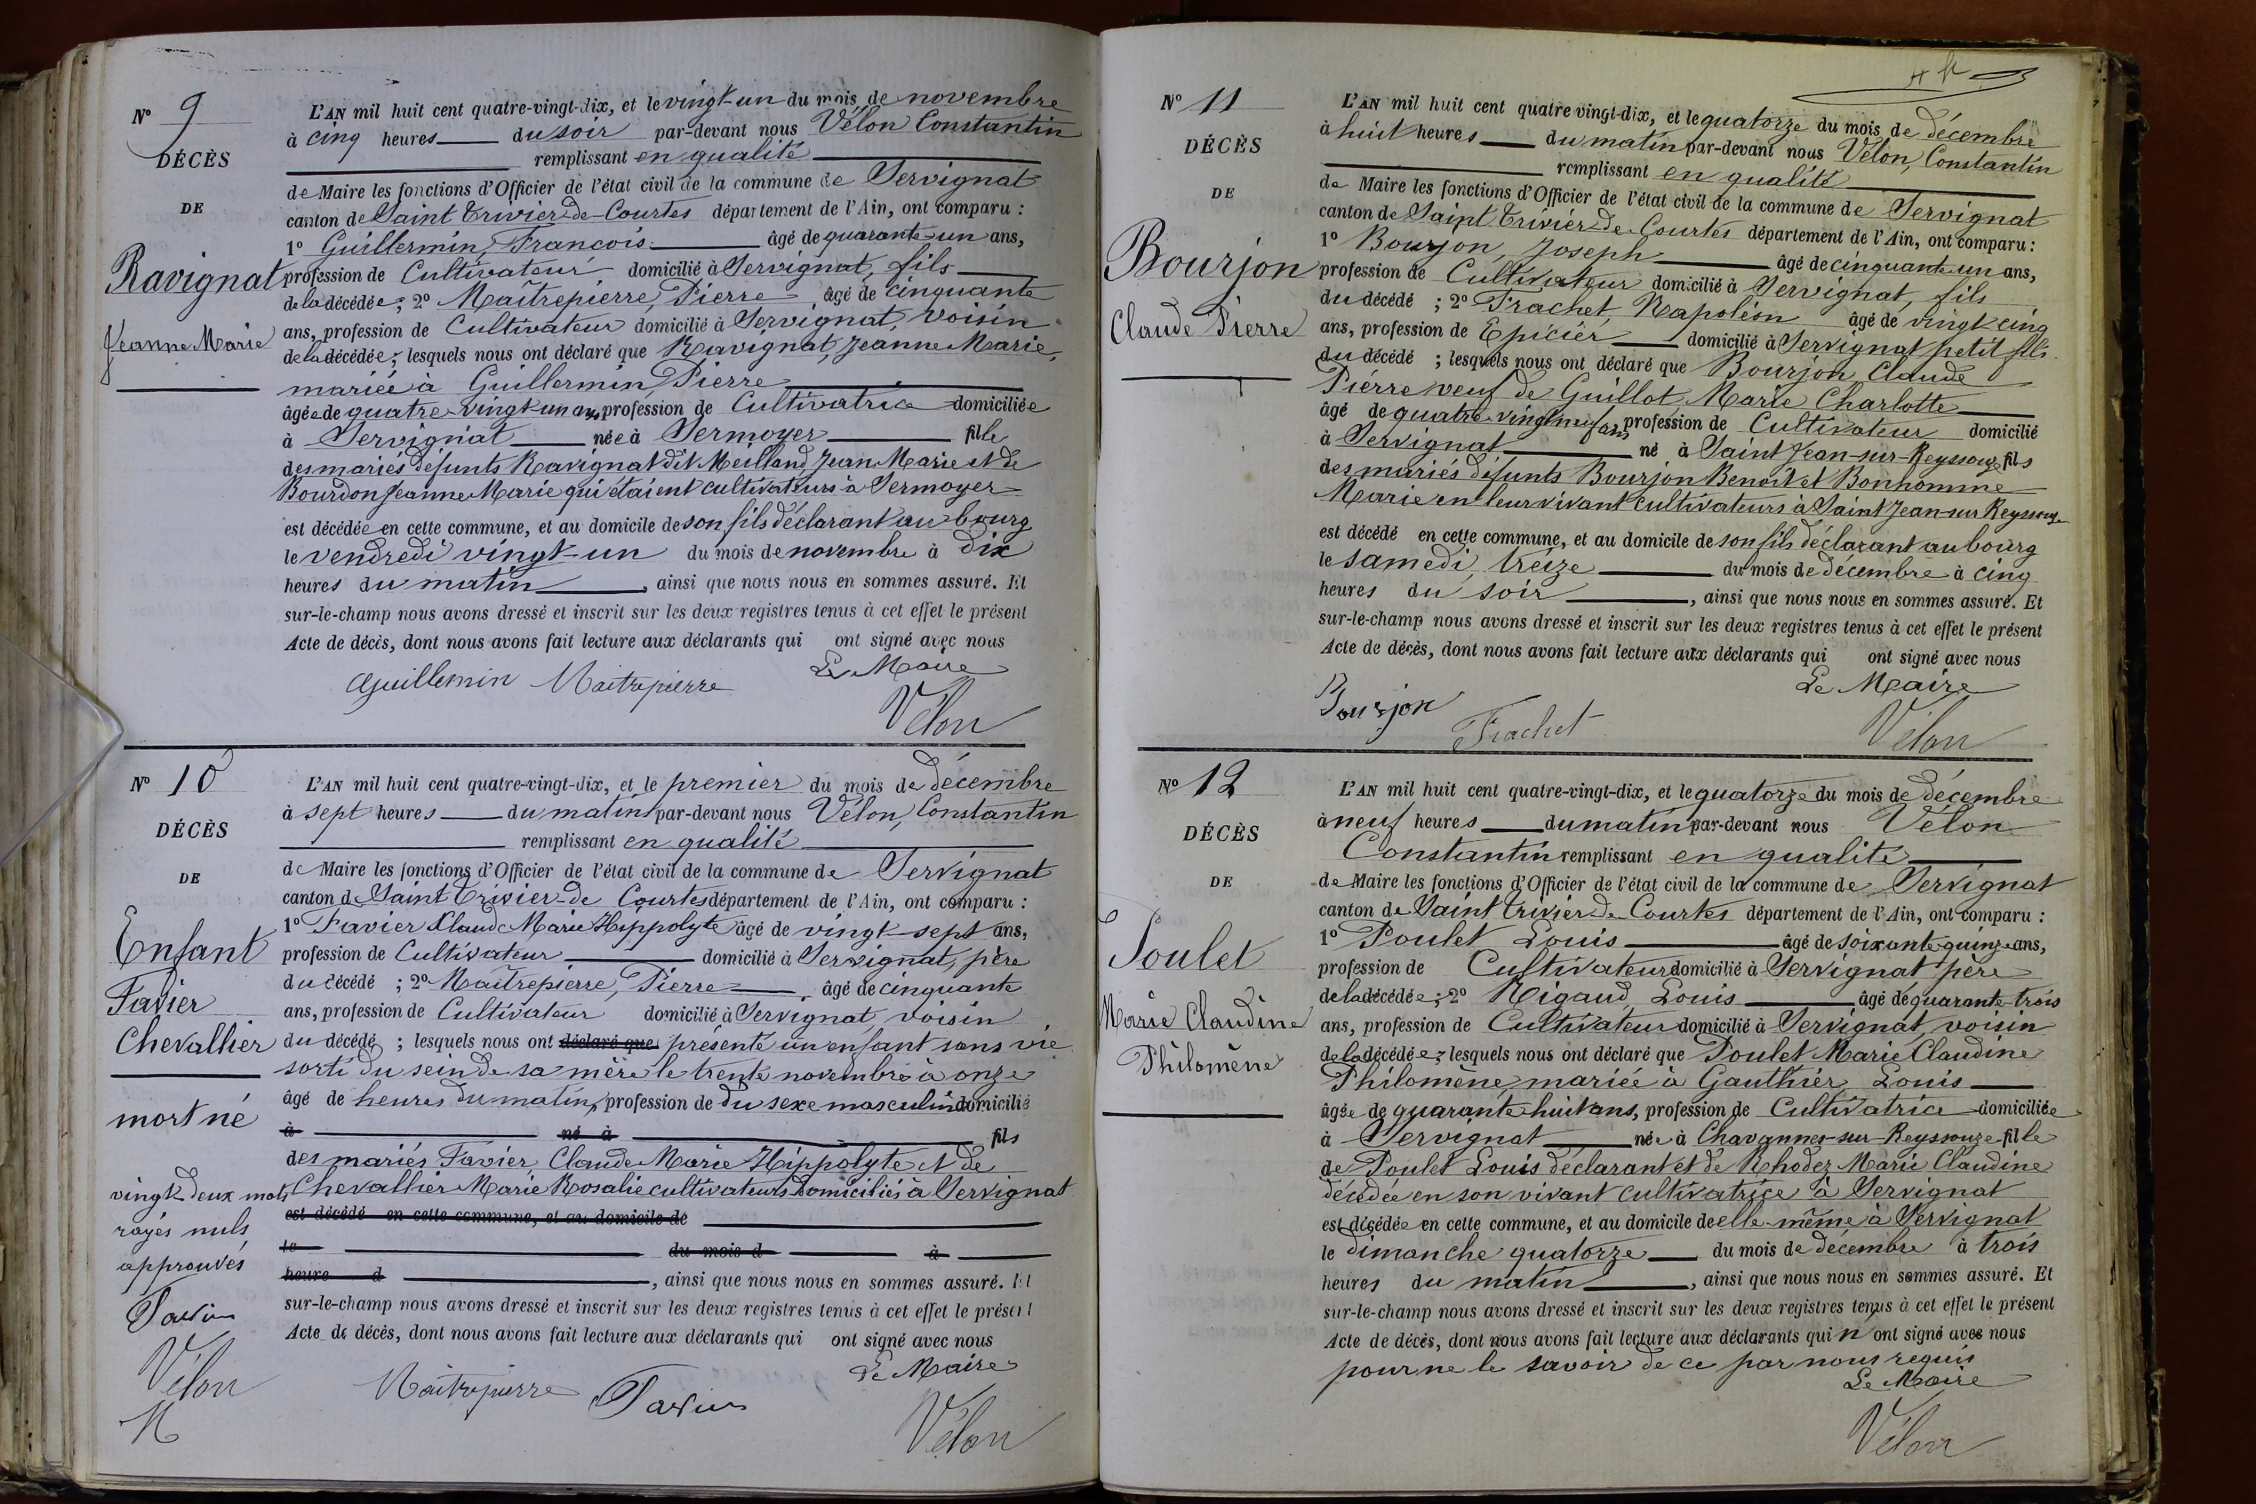 N° 9
DÉCÈS
DE
Ravignat
Jeanne Marie
L'AN mil huit cent quatre-vingt-dix, et le vingt-un du mois de novembre
à cinq heures du soir par-devant nous Vélon Constantin
remplissant en qualité
de Maire les fonctions d'Officier de l'état civil de la commune de Servignat
canton de Saint Trivier-de-Courtes département de l'Ain, ont comparu :
1° Guillermin, François âgé de quarante-un ans,
profession de Cultivateur domicilié à Servignat, fils
de la décédée ; 2° Maîtrepierre, Pierre âgé de cinquante
ans, profession de Cultivateur domicilié à Servignat, voisin
de la décédée ; lesquels nous ont déclaré que Ravignat, Jeanne Marie,
mariée à Guillermin, Pierre
âgée de quatre-vingt-un ans, profession de Cultivatrice domiciliée
à Servignat née à Sermoyer fille
des mariés défunts Ravignat dit Meilland, Jean Marie et de
Bourdon Jeanne Marie qui étaient cultivateurs à Sermoyer
est décédée en cette commune, et au domicile de son fils déclarant au bourg
le vendredi vingt-un du mois de novembre à dix
heures du matin, ainsi que nous nous en sommes assuré. Et
sur-le-champ nous avons dressé et inscrit sur les deux registres tenus à cet effet le présent
Acte de décès, dont nous avons fait lecture aux déclarants qui ont signé avec nous
Le Maire
Guillemin Maitrepierre
Vélon
N° 10
DÉCÈS
DE
Enfant
Favier
Chevallier
mort né
vingt-deux mots
rayés nuls
approuvés
Favier
Vélon
M
L'AN mil huit cent quatre-vingt-dix, et le premier du mois de décembre
à sept heures du matin par-devant nous Vélon, Constantin
remplissant en qualité
de Maire les fonctions d'Officier de l'état civil de la commune de Servignat
canton de Saint Trivier-de Courtes département de l'Ain, ont comparu :
1° Favier Claude Marie Hippolyte âgé de vingt-sept ans,
profession de Cultivateur domicilié à Servignat, père
du décédé ; 2° Maîtrepierre, Pierre, âgé de cinquante
ans, profession de Cultivateur domicilié à Servignat voisin
du décédé ; lesquels nous ont déclaré que présenté un enfant sans vie
sorti du sein de sa mère le trente novembre à onze
âgé de heures du matin, profession de du sexe masculin domicilié
à né à fils
des mariés Favier, Claude Marie Hippolyte et de
Chevallier Marie Rosalie cultivateurs domiciliés à Servignat
est décédé en cette commune, et au domicile de
le du mois d à
heure d, ainsi que nous nous en sommes assuré. Et
sur-le-champ nous avons dressé et inscrit sur les deux registres tenus à cet effet le présent
Acte de décès, dont nous avons fait lecture aux déclarants qui ont signé avec nous
Le Maire
Maitrepierre Favier
Vélon
N° 11
DÉCÈS
DE
Bourjon
Claude Pierre
L'AN mil huit cent quatre vingt-dix, et le quatorze du mois de décembre
à huit heures du matin par-devant nous Vélon, Constantin
remplissant en qualité
de Maire les fonctions d'Officier de l'état civil de la commune de Servignat
canton de Saint Trivier-de-Courtes département de l'Ain, ont comparu :
1° Bourjon, Joseph âgé de cinquante-un ans,
profession de Cultivateur domicilié à Servignat, fils
du décédé ; 2° Frachet Napoléon âgé de vingt cinq
ans, profession de Epicier domicilié à Servignat petit fils
du décédé ; lesquels nous ont déclaré que Bourjon Claude
Pierre veuf de Guillot Marie Charlotte
âgé de quatre-vingt neuf ans profession de Cultivateur domicilié
à Servignat né à Saint Jean-sur-Reyssouze fils
des mariés défunts Bourjon Benoît et Bonhomme
Marie en leur vivant cultivateurs à Saint Jean-sur Reyssouze
est décédé en cette commune, et au domicile de son fils déclarant au bourg
le samedi, treize du mois de décembre à cinq
heures du soir, ainsi que nous nous en sommes assuré. Et
sur-le-champ nous avons dressé et inscrit sur les deux registres tenus à cet effet le présent
Acte de décès, dont nous avons fait lecture aux déclarants qui ont signé avec nous
Le Maire
Bourjon
Frachet
Vélon
N° 12
DÉCÈS
DE
Poulet
Marie Claudine
Philomène
L'AN mil huit cent quatre-vingt-dix, et le quatorze du mois de décembre
à neuf heures du matin par-devant nous Vélon
Constantin remplissant en qualité
de Maire les fonctions d'Officier de l'état civil de la commune de Servignat
canton de Saint Trivier-de-Courtes département de l'Ain, ont comparu :
1° Poulet Louis âgé de soixante-quinze ans,
profession de Cultivateur domicilié à Servignat père
de la décédée ; 2° Rigaud, Louis âgé de quarante-trois
ans, profession de Cultivateur domicilié à Servignat, voisin
de la décédée ; lesquels nous ont déclaré que Poulet Marie Claudine
Philomène mariée à Gauthier, Louis
âgée de quarante-huit ans, profession de Cultivatrice domiciliée
à Servignat née à Chavannes-sur-Reyssouze fille
de Poulet Louis déclarant et de Rhodez Marie Claudine
décédée en son vivant cultivatrice à Servignat
est décédée en cette commune, et au domicile de elle-même à Servignat
le dimanche quatorze du mois de décembre à trois
heures du matin, ainsi que nous nous en sommes assuré. Et
sur-le-champ nous avons dressé et inscrit sur les deux registres tenus à cet effet le présent
Acte de décès, dont nous avons fait lecture aux déclarants qui n'ont signé avec nous
pour ne le savoir de ce par nous requis
Le Maire
Vélon